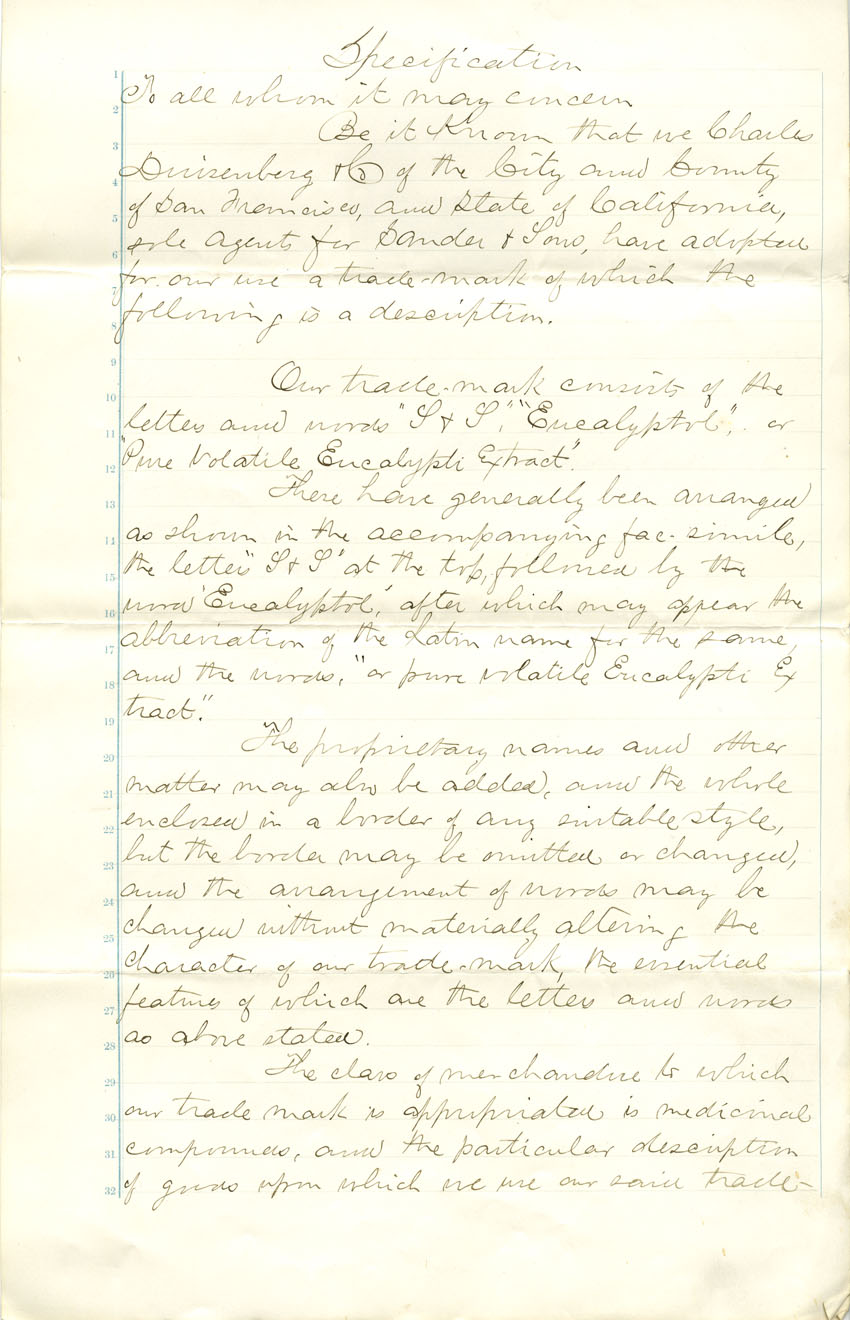 Specification
1
To all whom it may concern
2
Be it Known that we Charles
3
Duisenberg & Co of the City and County
4
of San Francisco, and State of California,
5
sole Agents for Sander & Sons, have adopted
6
for our use a trade-mark of which the
7
following is a description.
8
9
Our trade-mark consists of the
10
letters and words "S & S", "Eucalyptol", or
11
"Pure Volatile Eucalypti Extract".
12
These have generally been arranged
13
as shown in the accompanying fac-simile,
14
the letters "S & S" at the top, followed by the
15
word "Eucalyptol", after which may appear the
16
abbreviation of the Latin name for the same,
17
and the words, "or pure volatile Eucalypti Ex
18
tract."
19
The proprietary names and other
20
matter may also be added, and the whole
21
enclosed in a border of any suitable style,
22
but the border may be omitted or changed,
23
and the arrangement of words may be
24
changed without materially altering the
25
character of our trade-mark, the essential
26
features of which are the letters and words
27
as above stated.
28
The class of merchandise to which
29
our trade mark is appropriated is medicinal
30
compounds, and the particular description
31
of goods upon which we use our said trade-
32